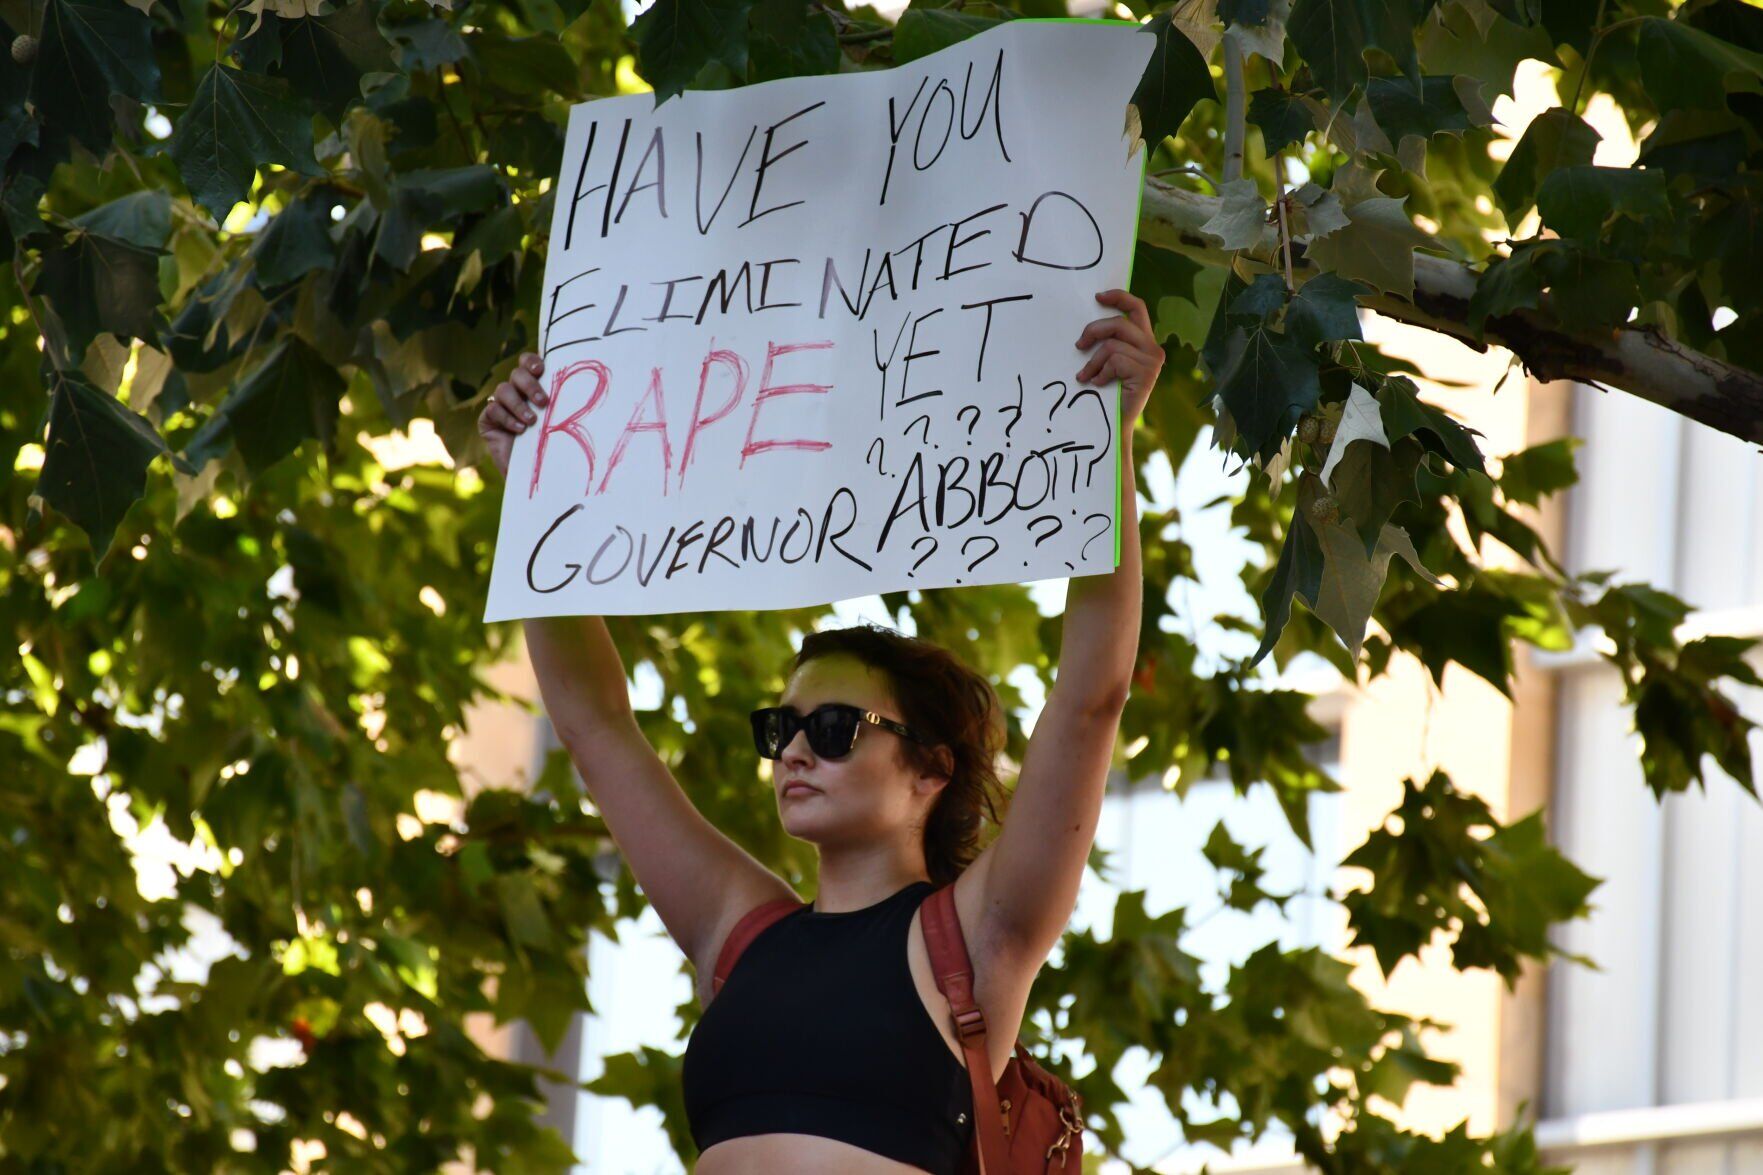 HAVE YOU
ELIMINATED
RAPE YET
??????
GOVERNOR ABBOTT?
????